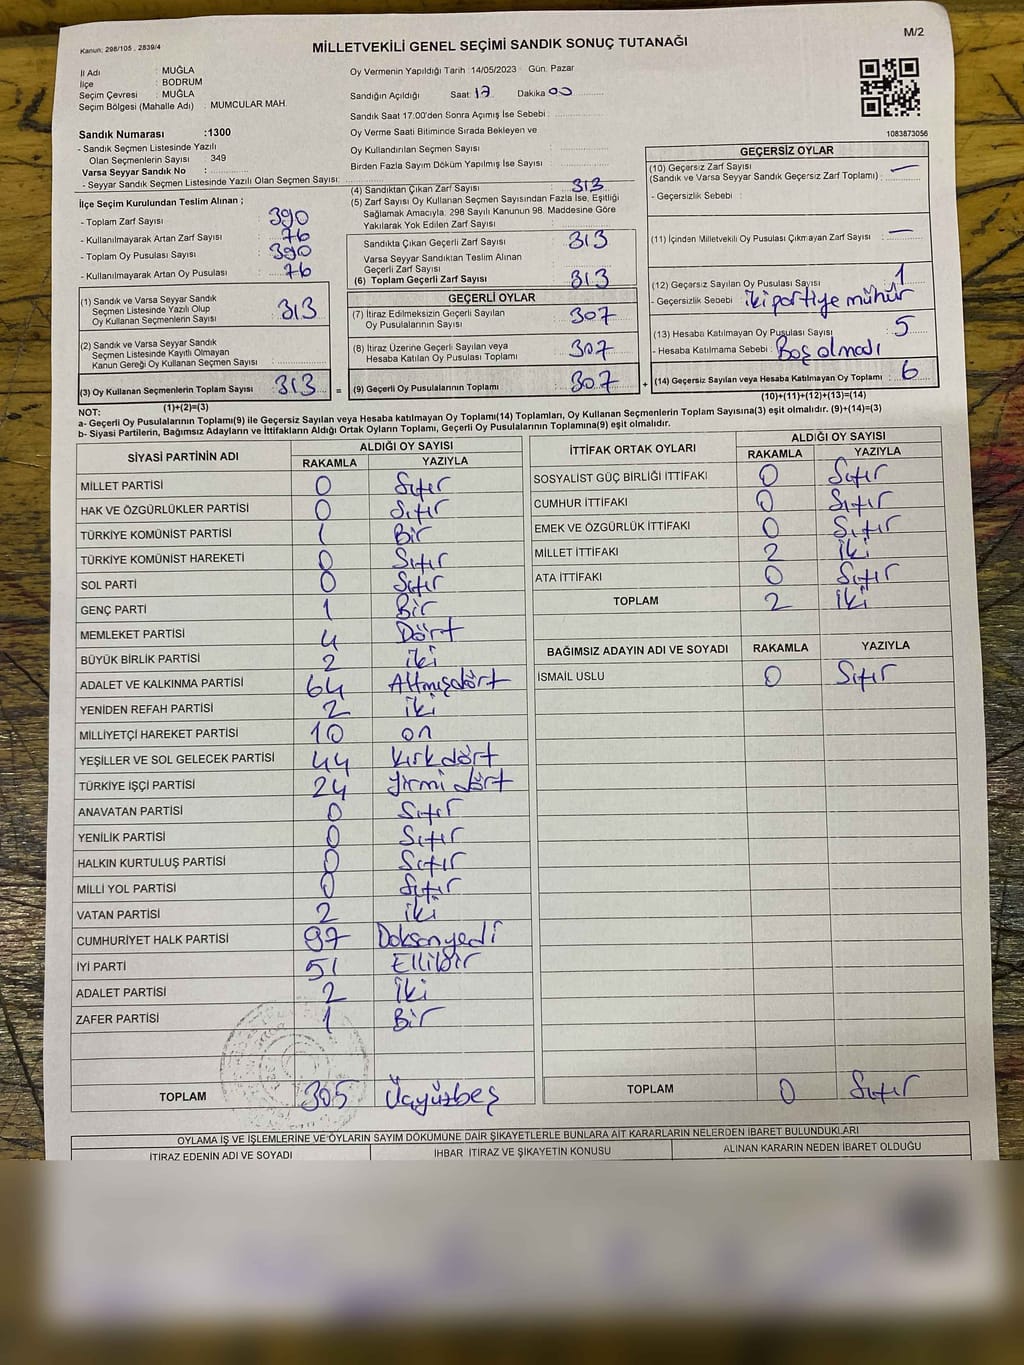 Kanun: 298/105 , 2839/4
MİLLETVEKİLİ GENEL SEÇİMİ SANDIK SONUÇ TUTANAĞI
M/2
İl Adı : MUĞLA
İlçe : BODRUM
Seçim Çevresi : MUĞLA
Seçim Bölgesi (Mahalle Adı) : MUMCULAR MAH.
Sandık Numarası :1300
- Sandık Seçmen Listesinde Yazılı
Olan Seçmenlerin Sayısı : 349
Varsa Seyyar Sandık No :
- Seyyar Sandık Seçmen Listesinde Yazılı Olan Seçmen Sayısı:
Oy Vermenin Yapıldığı Tarih :14/05/2023 Gün: Pazar
Sandığın Açıldığı Saat: 17 Dakika 00
Sandık Saat 17.00'den Sonra Açımış İse Sebebi :
Oy Verme Saati Bitiminde Sırada Bekleyen ve
Oy Kullandırılan Seçmen Sayısı :
Birden Fazla Sayım Döküm Yapılmış İse Sayısı :
1083873056
İlçe Seçim Kurulundan Teslim Alınan ;
- Toplam Zarf Sayısı : 390
- Kullanılmayarak Artan Zarf Sayısı : 76
- Toplam Oy Pusulası Sayısı : 390
- Kullanılmayarak Artan Oy Pusulası : 76
(1) Sandık ve Varsa Seyyar Sandık
Seçmen Listesinde Yazılı Olup
Oy Kullanan Seçmenlerin Sayısı : 313
(2) Sandık ve Varsa Seyyar Sandık
Seçmen Listesinde Kayıtlı Olmayan
Kanun Gereği Oy Kullanan Seçmen Sayısı :
(3) Oy Kullanan Seçmenlerin Toplam Sayısı : 313
(1)+(2)=(3)
(4) Sandıktan Çıkan Zarf Sayısı : 313
(5) Zarf Sayısı Oy Kullanan Seçmen Sayısından Fazla İse, Eşitliği
Sağlamak Amacıyla, 298 Sayılı Kanunun 98. Maddesine Göre
Yakılarak Yok Edilen Zarf Sayısı :
Sandıkta Çıkan Geçerli Zarf Sayısı : 313
Varsa Seyyar Sandıktan Teslim Alınan
Geçerli Zarf Sayısı :
(6) Toplam Geçerli Zarf Sayısı : 313
GEÇERLİ OYLAR
(7) İtiraz Edilmeksizin Geçerli Sayılan
Oy Pusulalarının Sayısı : 307
(8) İtiraz Üzerine Geçerli Sayılan veya
Hesaba Katılan Oy Pusulası Toplamı : 307
= (9) Geçerli Oy Pusulalarının Toplamı : 307
GEÇERSİZ OYLAR
(10) Geçersiz Zarf Sayısı
(Sandık ve Varsa Seyyar Sandık Geçersiz Zarf Toplamı) : —
- Geçersizlik Sebebi :
(11) İçinden Milletvekili Oy Pusulası Çıkmayan Zarf Sayısı : —
(12) Geçersiz Sayılan Oy Pusulası Sayısı : 1
- Geçersizlik Sebebi : iki partiye mühür
(13) Hesaba Katılmayan Oy Pusulası Sayısı : 5
- Hesaba Katılmama Sebebi : Boş olmadı
+ (14) Geçersiz Sayılan veya Hesaba Katılmayan Oy Toplamı : 6
(10)+(11)+(12)+(13)=(14)
NOT:
a- Geçerli Oy Pusulalarının Toplamı(9) ile Geçersiz Sayılan veya Hesaba katılmayan Oy Toplamı(14) Toplamları, Oy Kullanan Seçmenlerin Toplam Sayısına(3) eşit olmalıdır. (9)+(14)=(3)
b- Siyasi Partilerin, Bağımsız Adayların ve İttifakların Aldığı Ortak Oyların Toplamı, Geçerli Oy Pusulalarının Toplamına(9) eşit olmalıdır.
SİYASİ PARTİNİN ADI ALDIĞI OY SAYISI
RAKAMLA YAZIYLA
MİLLET PARTİSİ 0 Sıfır
HAK VE ÖZGÜRLÜKLER PARTİSİ 0 Sıfır
TÜRKİYE KOMÜNİST PARTİSİ 1 Bir
TÜRKİYE KOMÜNİST HAREKETİ 0 Sıfır
SOL PARTİ 0 Sıfır
GENÇ PARTİ 1 Bir
MEMLEKET PARTİSİ 4 Dört
BÜYÜK BİRLİK PARTİSİ 2 iki
ADALET VE KALKINMA PARTİSİ 64 Altmışdört
YENİDEN REFAH PARTİSİ 2 iki
MİLLİYETÇİ HAREKET PARTİSİ 10 on
YEŞİLLER VE SOL GELECEK PARTİSİ 44 Kırkdört
TÜRKİYE İŞÇİ PARTİSİ 24 Yirmi dört
ANAVATAN PARTİSİ 0 Sıfır
YENİLİK PARTİSİ 0 Sıfır
HALKIN KURTULUŞ PARTİSİ 0 Sıfır
MİLLİ YOL PARTİSİ 0 Sıfır
VATAN PARTİSİ 2 iki
CUMHURİYET HALK PARTİSİ 97 Doksanyedi
İYİ PARTİ 51 Ellibir
ADALET PARTİSİ 2 iki
ZAFER PARTİSİ 1 Bir
TOPLAM 305 Üçyüzbeş
İTTİFAK ORTAK OYLARI ALDIĞI OY SAYISI
RAKAMLA YAZIYLA
SOSYALİST GÜÇ BİRLİĞİ İTTİFAKI 0 Sıfır
CUMHUR İTTİFAKI 0 Sıfır
EMEK VE ÖZGÜRLÜK İTTİFAKI 0 Sıfır
MİLLET İTTİFAKI 2 iki
ATA İTTİFAKI 0 Sıfır
TOPLAM 2 iki
BAĞIMSIZ ADAYIN ADI VE SOYADI RAKAMLA YAZIYLA
İSMAİL USLU 0 Sıfır
TOPLAM 0 Sıfır
OYLAMA İŞ VE İŞLEMLERİNE VE OYLARIN SAYIM DÖKÜMÜNE DAİR ŞİKAYETLERLE BUNLARA AİT KARARLARIN NELERDEN İBARET BULUNDUKLARI
İTİRAZ EDENİN ADI VE SOYADI İHBAR İTİRAZ VE ŞİKAYETİN KONUSU ALINAN KARARIN NEDEN İBARET OLDUĞU